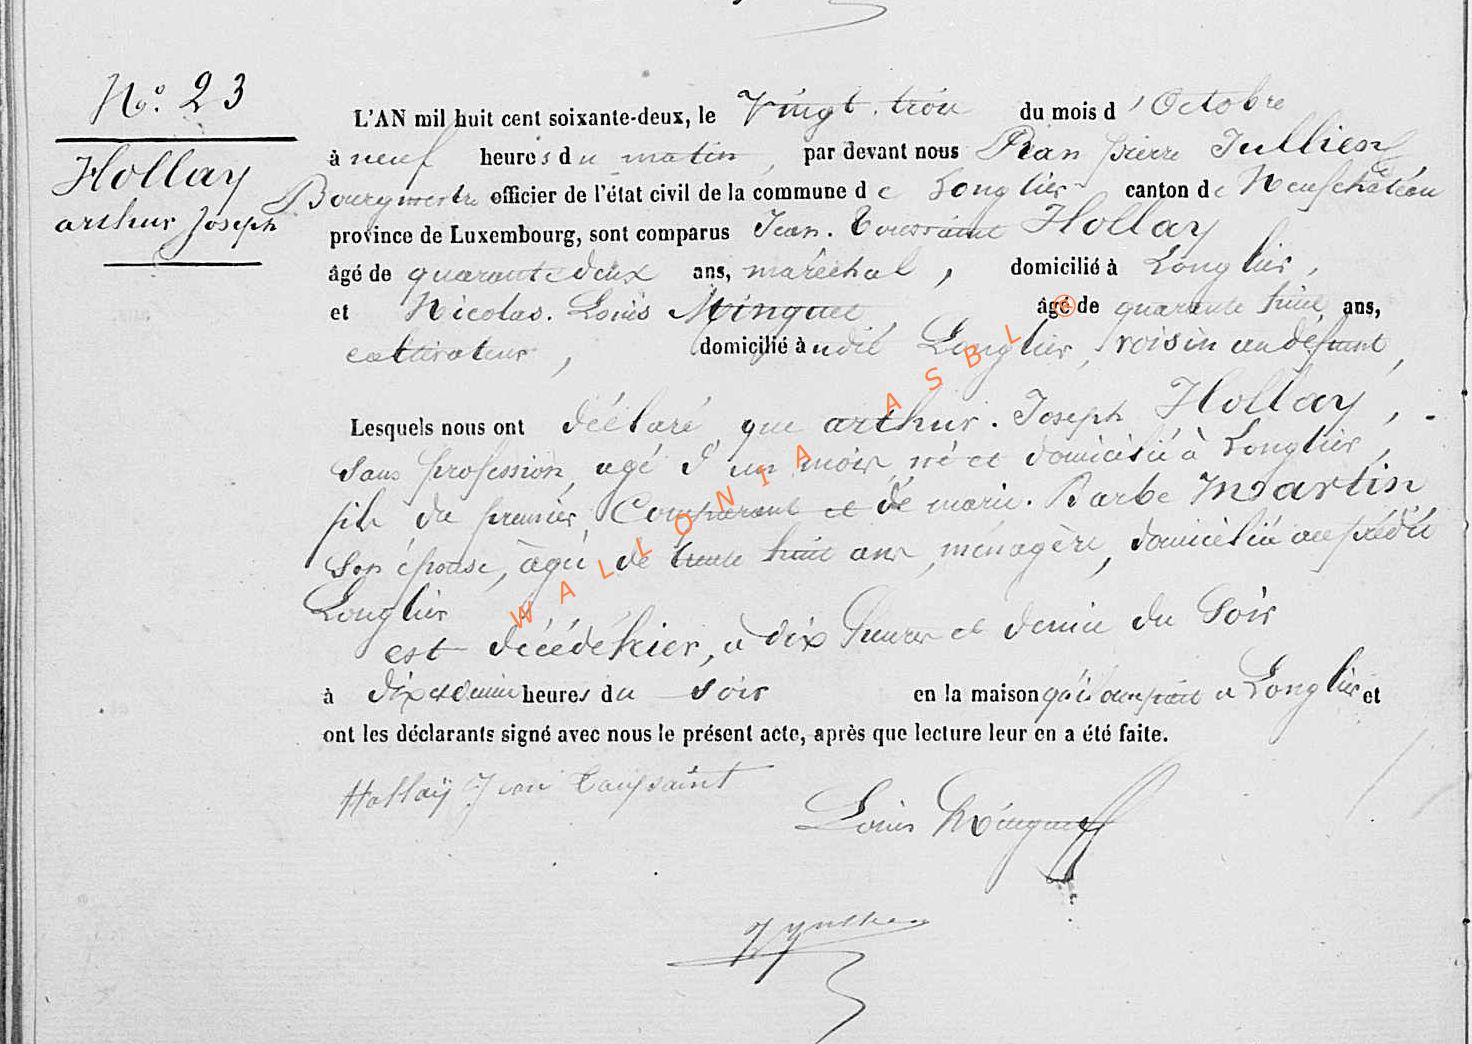 No. 23
Hollay
arthur Joseph
L'AN mil huit cent soixante-deux, le Vingt-trois du mois d'Octobre
à neuf heures du matin, par devant nous Jean pierre Jullien
Bourgmestre officier de l'état civil de la commune de Longlier canton de Neufchâteau
province de Luxembourg, sont comparus Jean-Toussaint Hollay
âgé de quarante deux ans, maréchal, domicilié à Longlier,
et Nicolas-Louis Minguet, âgé de quarante huit ans,
cultivateur, domicilié à udit Longlier, voisin au défunt,
Lesquels nous ont déclaré que arthur-Joseph Hollay,
sans profession, agé d'un mois, né et domicilié à Longlier,
fils du premier Comparant et de marie-Barbe Martin
son épouse, âgée de trente huit ans, ménagère, domiciliée au prédit
Longlier
est décédé hier, à dix heures et demie du Soir
à dix et demie heures du soir en la maison qu'il occupait à Longlier et
ont les déclarants signé avec nous le présent acte, après que lecture leur en a été faite.
Hollaÿ Jean Toussaint
Louis Minguet
WALLONIA ASBL ®